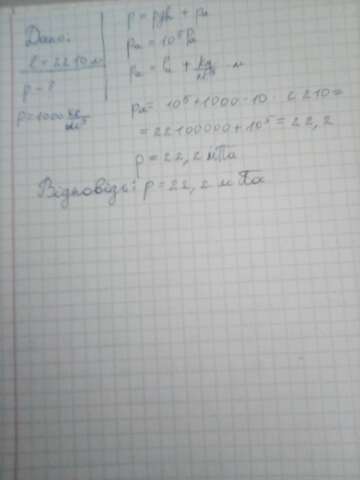 Дано:
l = 2210 м
p - ?
ρ = 1000 кг/м³
p = ρgh + pa
pa = 10⁵ Pa
pa = 10⁵ + 1000 · 10 · 2210 =
= 22100000 + 10⁵ = 22,2
p = 22,2 мПа
Відповідь: p = 22,2 м Па